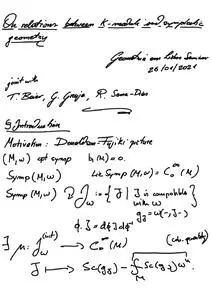 On relations between K-moduli and symplectic
geometry
Geometria em Lisboa Seminar
26/01/2021
joint with
T. Baier, G. Granja, R. Sena-Dias
§ Introduction
Motivation: Donaldson-Fujiki picture
(M,ω) cpt sympl b₁(M)=0.
Symp(M,ω) Lie Symp(M,ω) = C₀^∞(M)
Symp(M,ω) ↻ J_ω := { J | J is compatible
with ω }
g_J = ω(-, J-)
φ.J = dφ J dφ⁻¹
∃ μ: J_ω^(int) → C₀^∞(M)
J ↦ Sc(g_J) - ∫_M Sc(g_J) ωⁿ